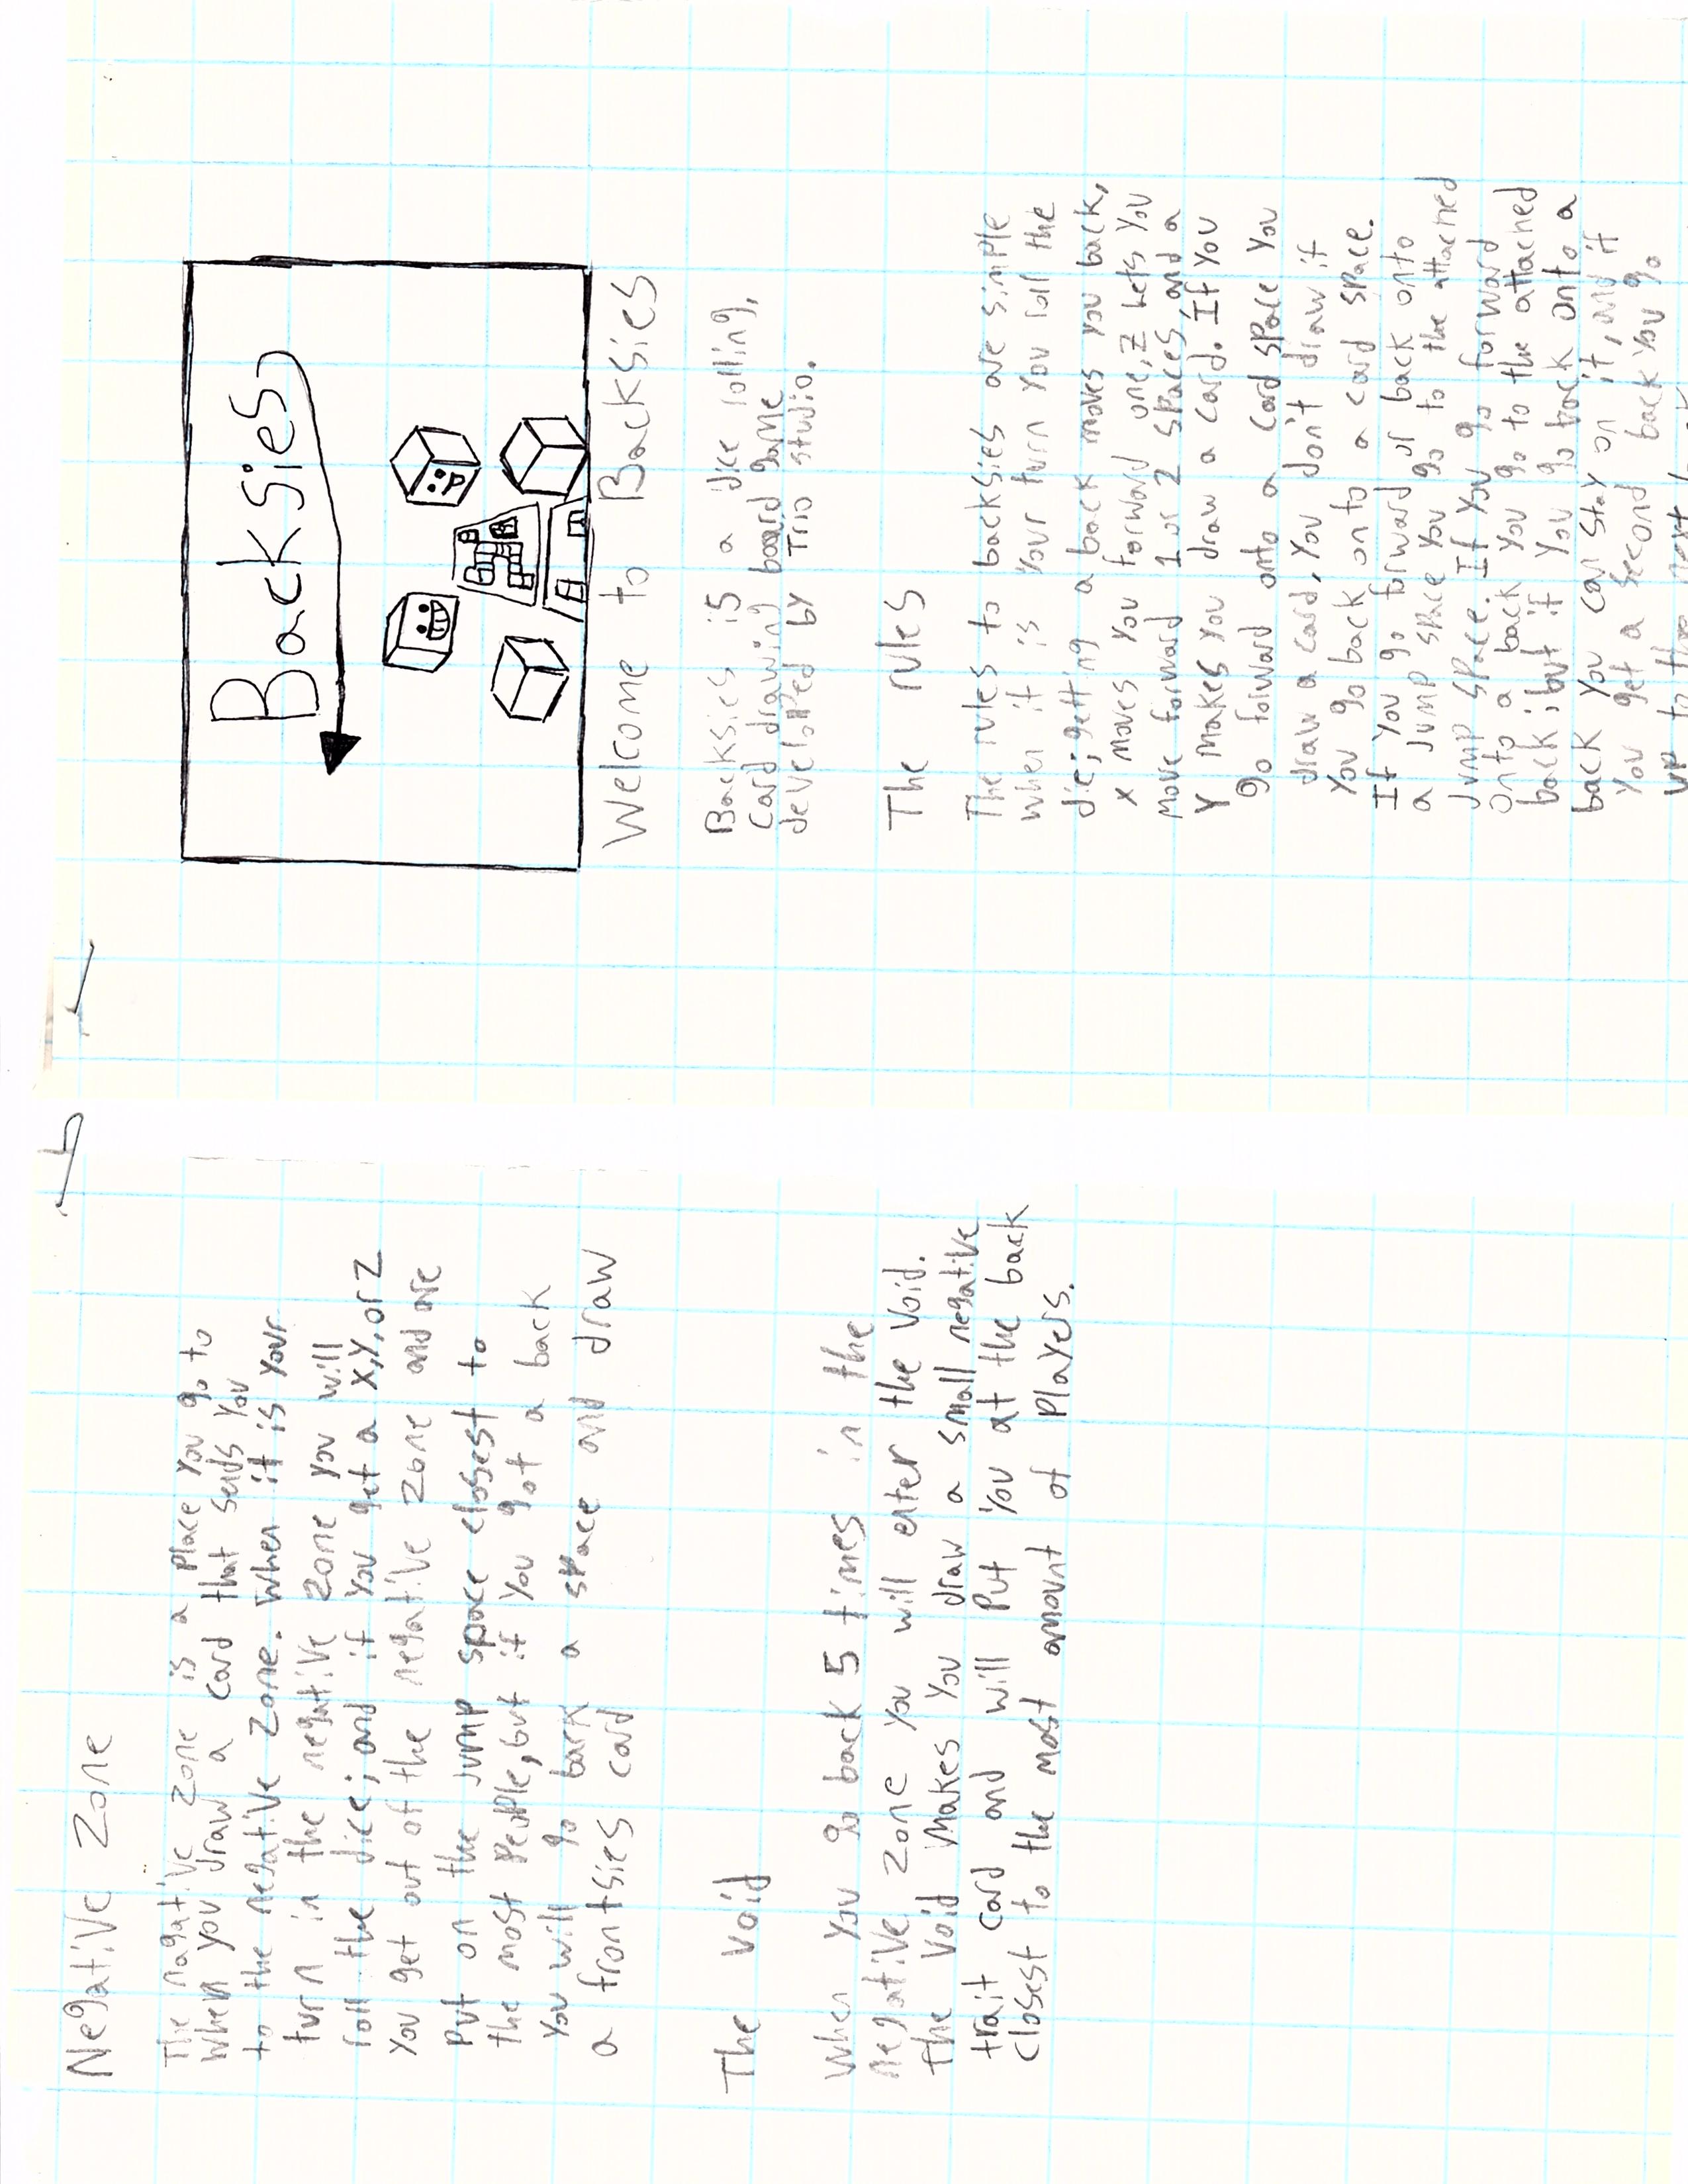 Negative Zone
The nagative zone is a place you go to
when you draw a card that sends you
to the negative zone. When it is your
turn in the negative zone you will
roll the dice; and if you get a X,Y, or Z
you get out of the negative zone and are
put on the jump space closest to
the most people, but if you got a back
you will go back a space and draw
a frontsies card
The void
When you go back 5 times in the
negative zone you will enter the void.
the void makes you draw a small negative
trait card and will put you at the back
closest to the most amount of players.
Backsies
Welcome to Backsies
Backsies is a dice rolling,
card drawing board game
developed by Trio studio.
The rules
The rules to backsies are simple
when it is your turn you roll the
die; getting a back moves you back,
x moves you forward one, Z lets you
move forward 1 or 2 spaces, and a
Y makes you draw a card. If you
go forward onto a card space you
draw a card, you don't draw if
you go back onto a card space.
If you go forward or back onto
a jump space you go to the attached
jump space. If you go forward
onto a back you go to the attached
back; but if you go back onto a
back you can stay on it, and if
you get a second back you go
up to the next